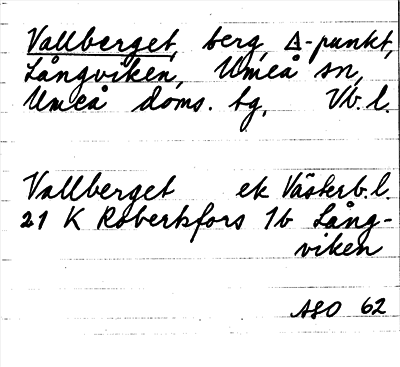 Vallberget, berg, Δ-punkt,
Långviken, Umeå sn,
Umeå doms. tg, Vb. l.
Vallberget ek Västerb. l.
21 K Robertsfors 1b Lång-
viken
ASO 62